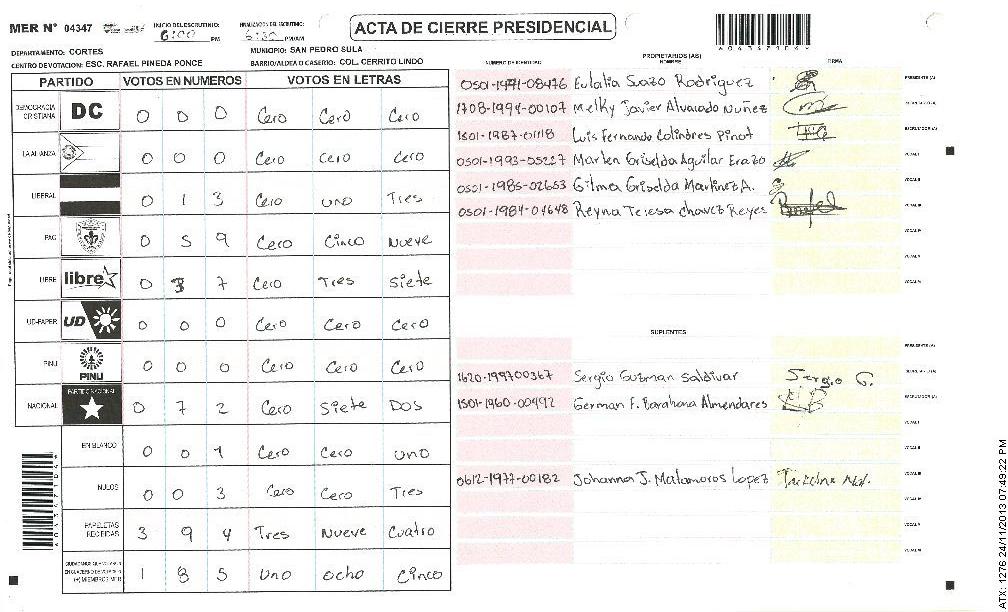 MER Nº 04347
INICIO DEL ESCRUTINIO: 6:00 PM
FINALIZACION DEL ESCRUTINIO: 6:30 PM/AM
ACTA DE CIERRE PRESIDENCIAL
DEPARTAMENTO: CORTES
MUNICIPIO: SAN PEDRO SULA
CENTRO DE VOTACION: ESC. RAFAEL PINEDA PONCE
BARRIO/ALDEA O CASERIO: COL. CERRITO LINDO
PARTIDO VOTOS EN NUMEROS VOTOS EN LETRAS
DEMOCRACIA CRISTIANA DC 0 0 0 Cero Cero Cero
LA ALIANZA 0 0 0 Cero cero Cero
LIBERAL 0 1 3 Cero uno Tres
PAC 0 5 9 Cero Cinco Nueve
LIBRE libre 0 3 7 Cero Tres siete
UD-FAPER UD 0 0 0 Cero Cero Cero
PINU PINU 0 0 0 Cero Cero Cero
NACIONAL PARTIDO NACIONAL 0 7 2 Cero siete DOS
EN BLANCO 0 0 1 Cero Cero uno
NULOS 0 0 3 Cero Cero Tres
PAPELETAS RECIBIDAS 3 9 4 Tres Nueve Cuatro
CIUDADANOS QUE VOTARON (+) MIEMBROS MER 1 8 5 uno ocho Cinco
NUMERO DE IDENTIDAD PROPIETARIOS (AS) FIRMA
0501-1971-08476 Eulalia Sazo Rodriguez PRESIDENTE (A)
1708-1994-00107 Melky Javier Alvarado Nuñez SECRETARIO (A)
1501-1987-01118 Luis Fernando Colindres Pinot ESCRUTADOR (A)
0501-1993-05227 Marlen Griselda Aguilar Erazo VOCAL I
0501-1985-02653 Gilma Griselda Martinez A. VOCAL II
0501-1984-04648 Reyna Teresa Chavez Reyes VOCAL III
VOCAL IV
VOCAL V
VOCAL VI
SUPLENTES
PRESIDENTE (A)
1620-199700367 Sergio Guzman Saldivar Sergio G. SECRETARIO (A)
1501-1960-00492 German F. Barahona Almendares ESCRUTADOR (A)
VOCAL I
VOCAL II
0612-1977-00182 Johanna J. Matamoros Lopez VOCAL III
VOCAL IV
VOCAL V
VOCAL VI
ATX: 1276 24/11/2013 07:49:22 PM